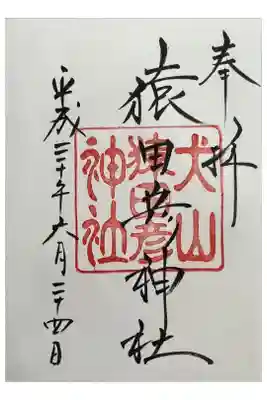 奉拝
猿田彦神社
犬山
猿田彦
神社
平成三十年六月二十四日